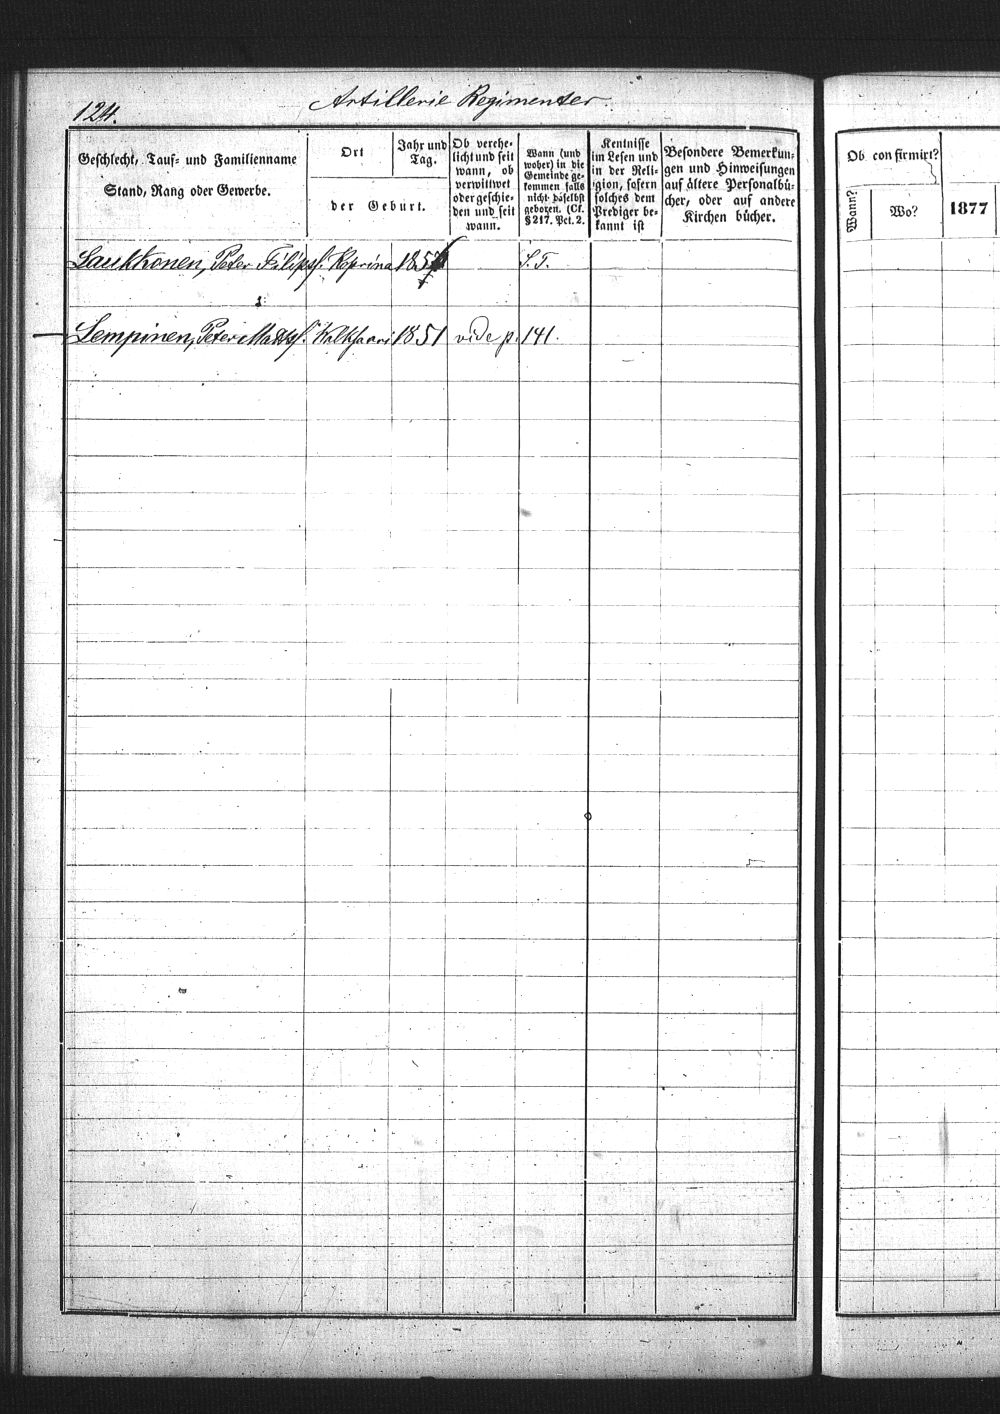 124.
Artillerie Regimenter.
Geschlecht, Tauf= und Familienname
Stand, Rang oder Gewerbe.
Ort
Jahr und
Tag.
der Geburt.
Ob verehe-
licht und seit
wann, ob
verwittwet
oder geschie-
den und seit
wann.
Wann (und
woher) in die
Gemeinde ge-
kommen falls
nicht daselbst
geboren. (Cf.
§ 217. Pct. 2.
Kentnisse
im Lesen und
in der Reli-
gion, sofern
solches dem
Prediger be-
kannt ist
Besondere Bemerkun-
gen und Hinweisungen
auf ältere Personalbü-
cher, oder auf andere
Kirchen bücher.
Ob confirmirt?
Wann?
Wo?
1877
Laukkonen, Peter Filipsf. Koprina S. T.
Lempinen, Peter Mattsf. Walkjaari 1851 vide p. 141.